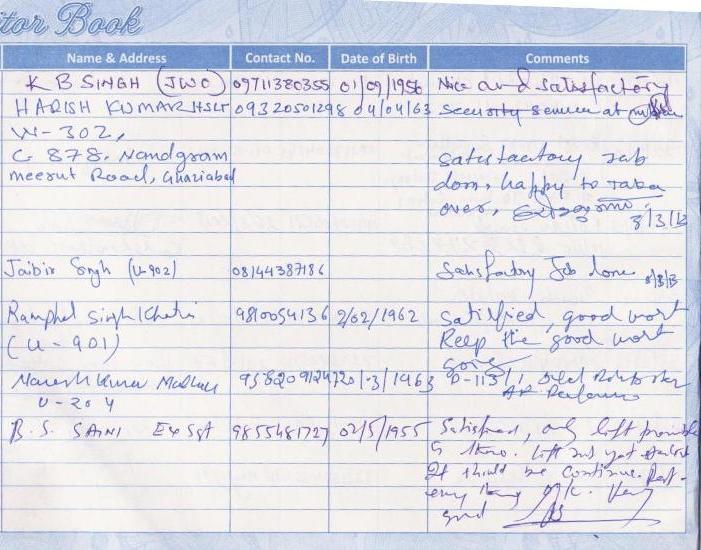 itor Book
Name & Address Contact No. Date of Birth Comments
K B SINGH (JWO) 09711380355 01/09/1956 Nice and satisfactory
HARISH KUMAR HSLT 09320501298 04/04/63 Security at
W-302,
C 878. Nandgram satisfactory Job
meerut Road, Ghaziabad don, happy to
over,
8/3/13
Jaibir Singh (U-902) 08144387186 Satisfactory Job done
Ramphal Singh Khatri 9810054136 2/02/1962 satisfied, good work
(U-901) Keep the good work
going
Naresh Kumar 20/-3/1963 D-113/1,
U-204
B. S. SAINI Ex Sgt 9855481727 02/5/1955 Satisfied, only lift
is there. Lift not yet
It should be continue. Rest
every thing O/K. Very
good